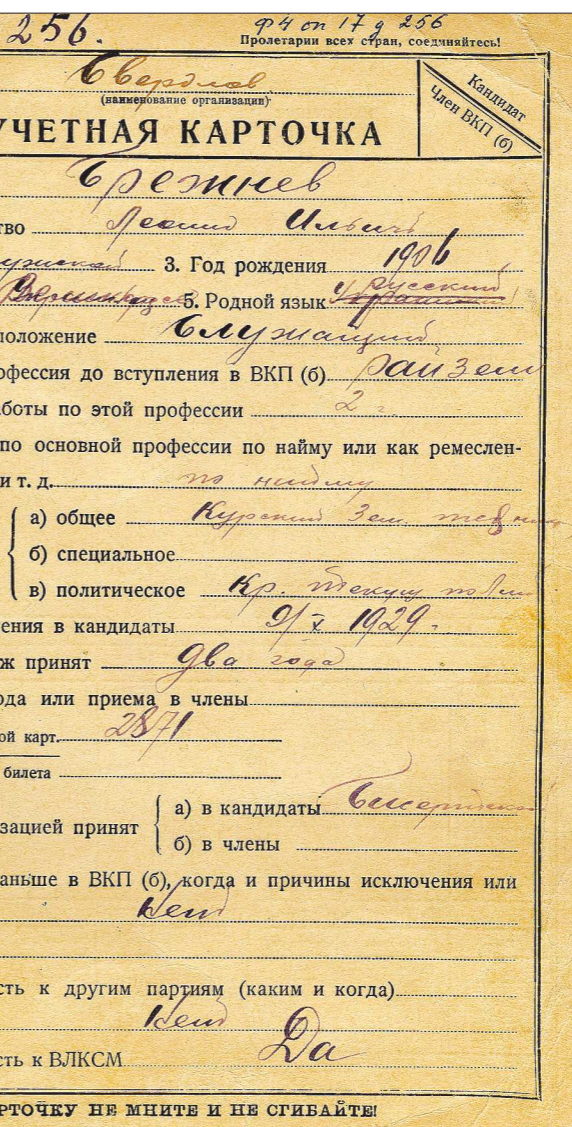 256.
Ф 4 оп 17 д 256
Пролетарии всех стран, соединяйтесь!
Свердлов
(наименование организации)
Кандидат
Член ВКП (б)
УЧЕТНАЯ КАРТОЧКА
Брежнев
тво Леонид Ильич
ужской 3. Год рождения 1906
5. Родной язык русский
положение Служащий
офессия до вступления в ВКП (б) райзем
аботы по этой профессии 2 г.
по основной профессии по найму или как ремеслен-
и т. д. по найму
а) общее Курский Зем.
б) специальное
в) политическое Кр.
ения в кандидаты 9/X 1929.
ж принят два года
ода или приема в члены
ой карт. 2871
билета
а) в кандидаты Бисертской
зацией принят
б) в члены
аньше в ВКП (б), когда и причины исключения или
Нет
сть к другим партиям (каким и когда)
Нет
сть к ВЛКСМ Да
РТОЧКУ НЕ МНИТЕ И НЕ СГИБАЙТЕ!